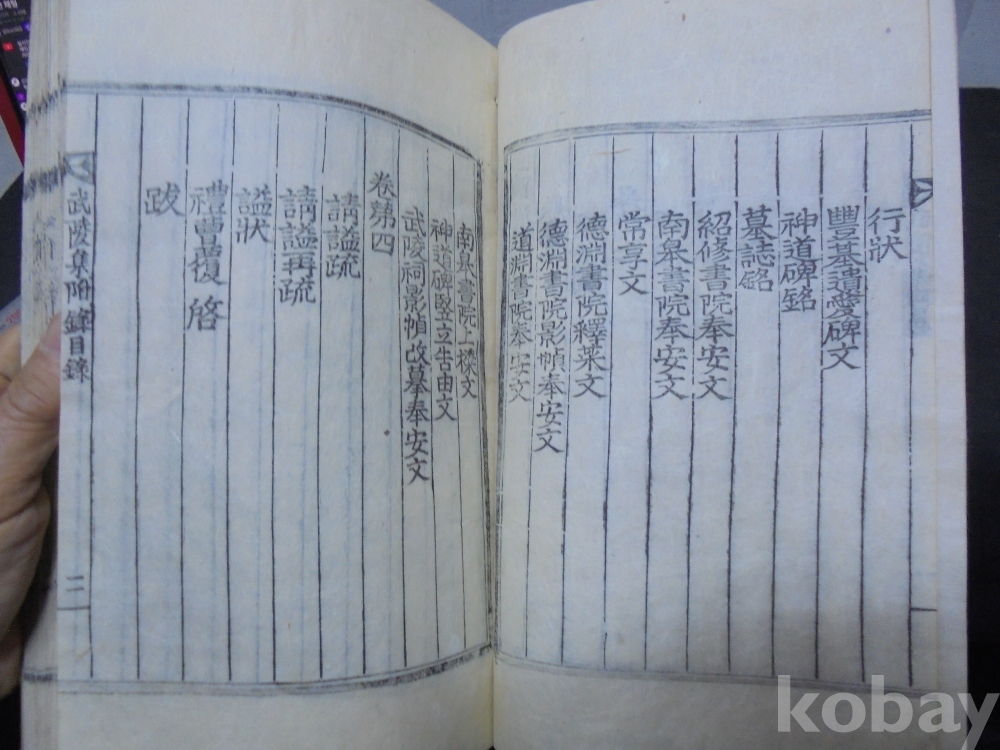 行狀
豐基遺愛碑文
神道碑銘
墓誌銘
紹修書院奉安文
南皋書院奉安文
常享文
德淵書院釋菜文
德淵書院影幀奉安文
道淵書院奉安文
南皋書院上樑文
神道碑竪立告由文
武陵祠影幀改摹奉安文
卷第四
請謚疏
請謚再疏
謚狀
禮曹覆啓
跋
武陵集附錄目錄
二
kobay